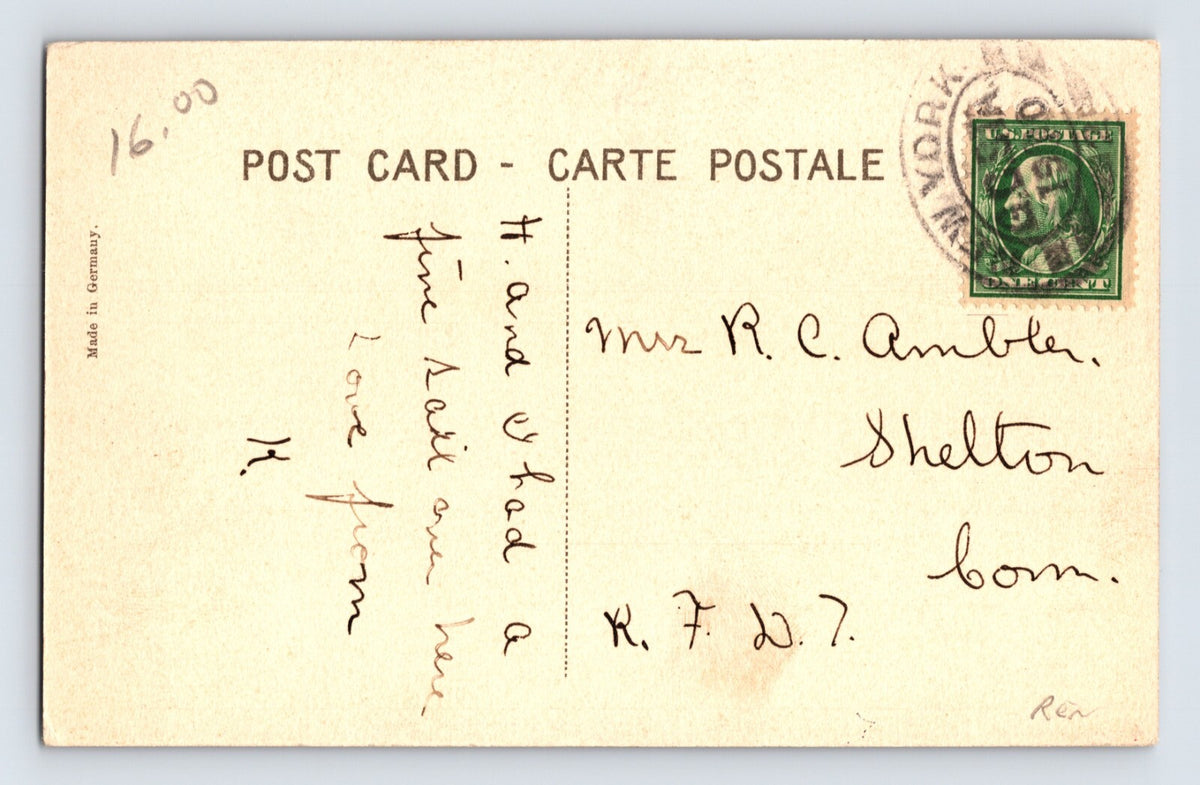 16.00
POST CARD - CARTE POSTALE
Made in Germany.
U.S. POSTAGE
ONE CENT
NEW YORK
H. and I had a
fine sail over here
Love from
K.
Mrs R. C. Ambler.
Shelton
Conn.
R. F. D. 7.